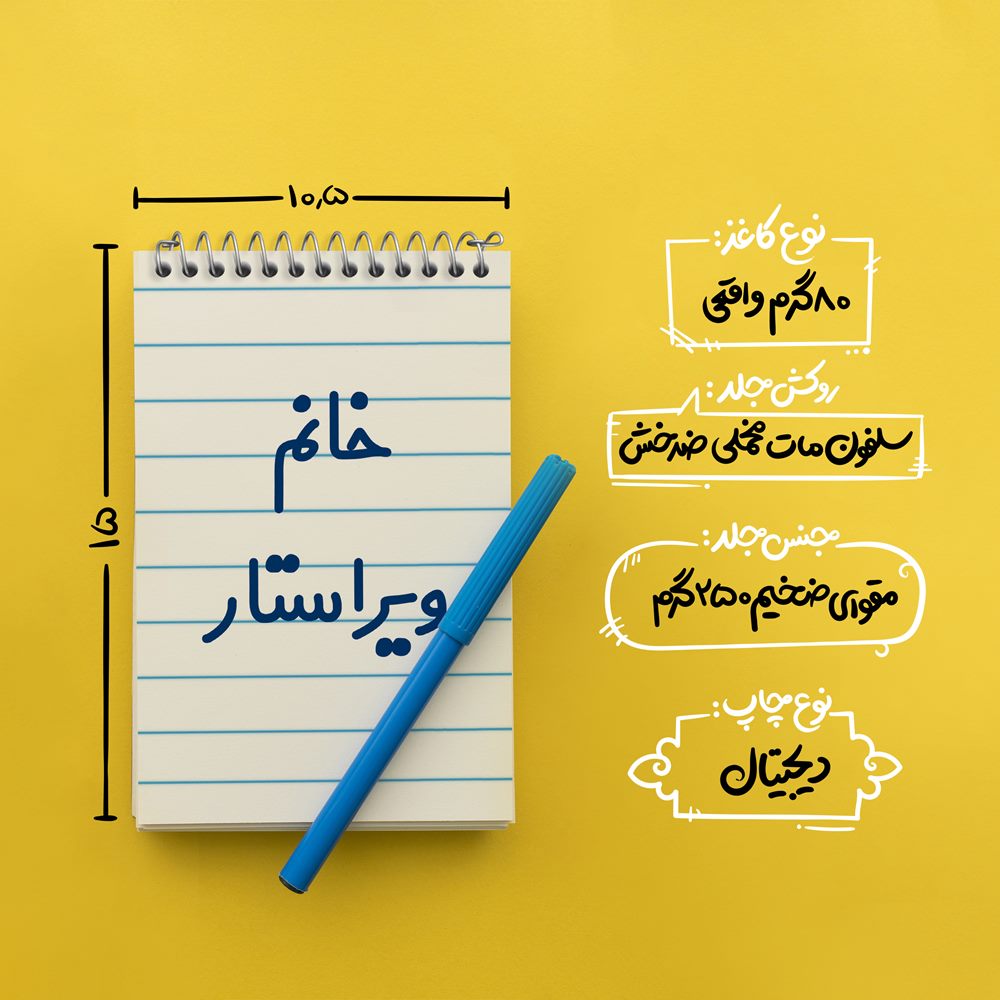 ۱۰٫۵
۱۵
خانم
ویراستار
نوع کاغذ:
۸۰گرم واقعی
روکش مجلد:
سلفون مات مخملی ضدخش
مجنس مجلد:
مقوای ضخیم ۲۵۰گرم
نوع چاپ:
دیجیتال